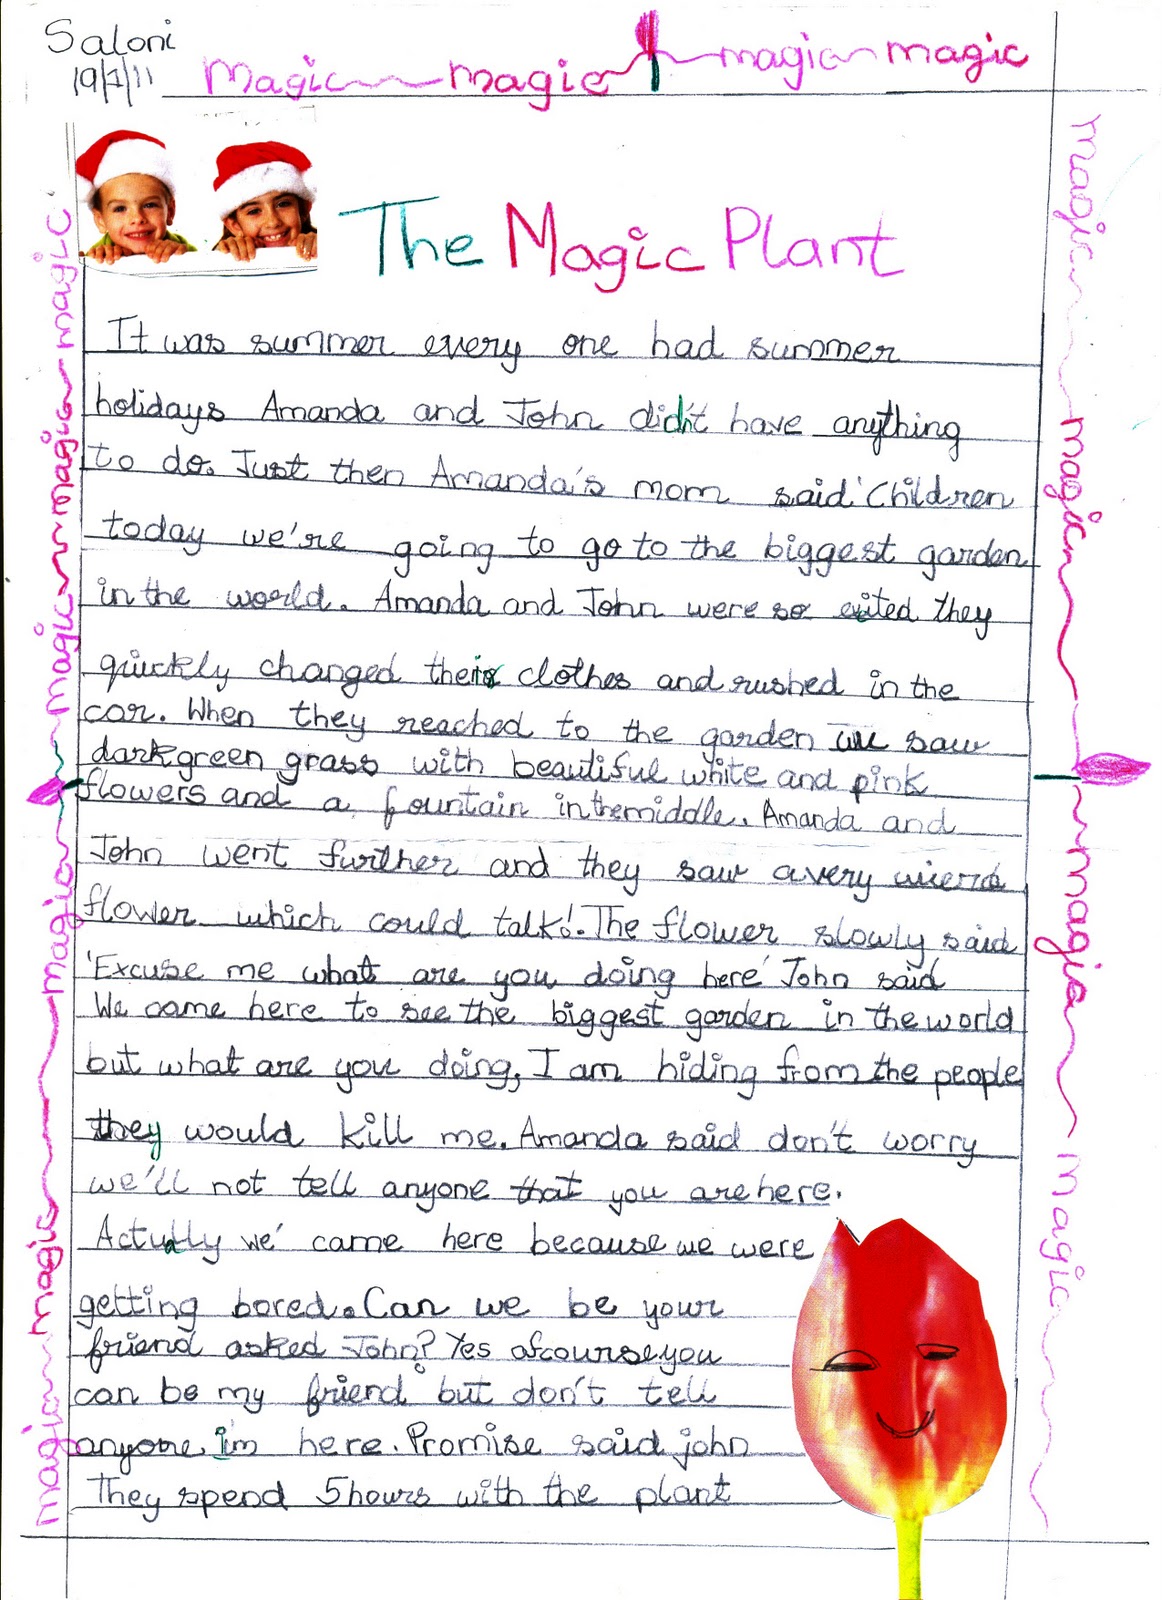 Saloni
19/7/11
magic magic magic magic
The Magic Plant
It was summer every one had summer
holidays Amanda and John didn't have anything
to do. Just then Amanda's mom said 'Children
today we're going to go to the biggest garden
in the world. Amanda and John were so exited they
quickly changed their clothes and rushed in the
car. When they reached to the garden we saw
dark green grass with beautiful white and pink
flowers and a fountain in the middle. Amanda and
John went further and they saw a very wierd
flower which could talk!. The flower slowly said
'Excuse me what are you doing here' John said
We came here to see the biggest garden in the world
but what are you doing, I am hiding from the people
they would kill me. Amanda said don't worry
we'll not tell anyone that you are here.
Actually we' came here because we were
getting bored. Can we be your
friend asked John? Yes ofcourse you
can be my friend but don't tell
anyone i'm here. Promise said john
They spend 5 hours with the plant
magic magic magic magic magic magic magic
magic magic magic magic